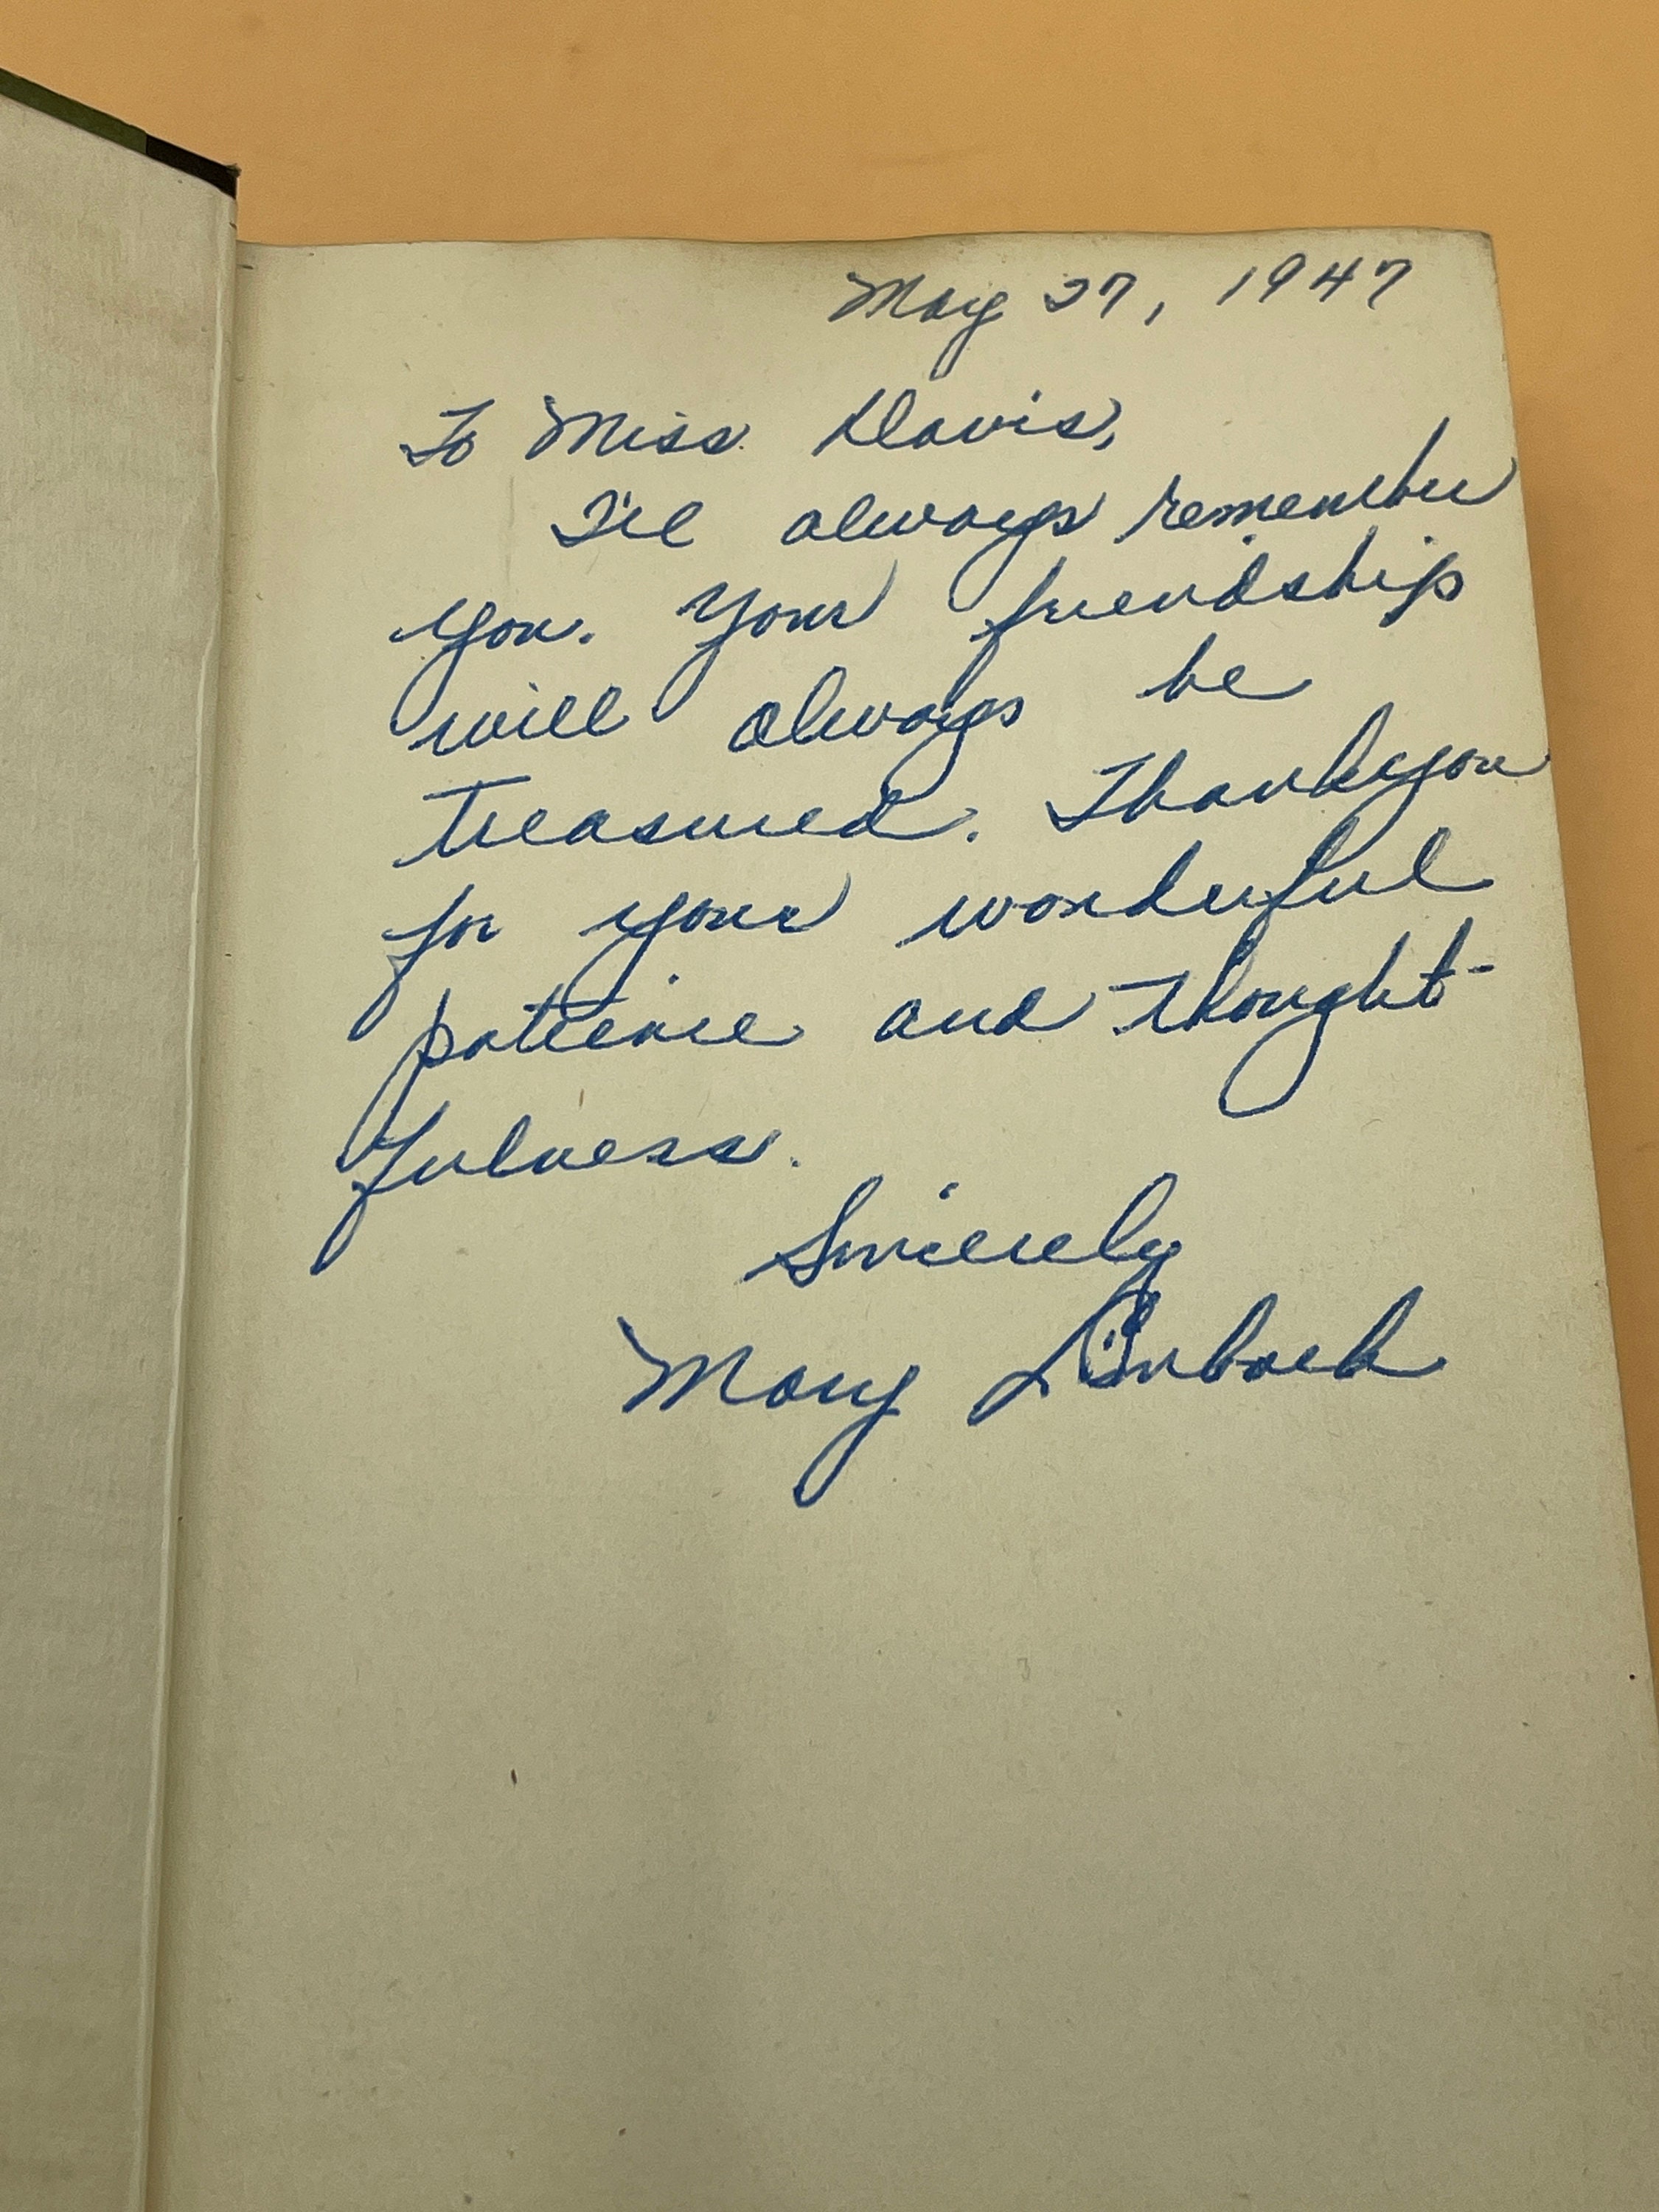 May 27, 1947
To Miss Davis,
I'll always remember
you. Your friendship
will always be
treasured. Thank you
for your wonderful
patience and thought-
fulness.
Sincerely
Mary